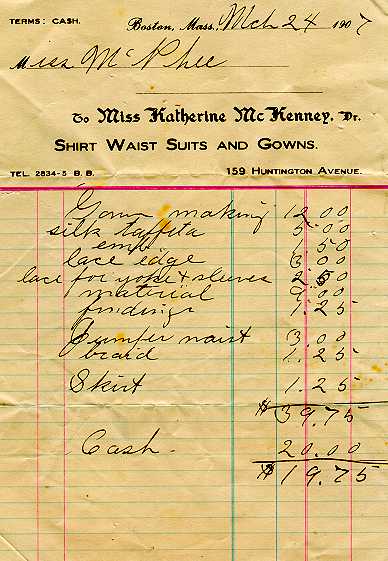 TERMS: CASH.
Boston, Mass., Mch 24 1907
Miss McPhee
To Miss Katherine McKenney, Dr.
SHIRT WAIST SUITS AND GOWNS.
TEL. 2834-5 B. B. 159 HUNTINGTON AVENUE.
Gown making 12.00
silk taffeta 5.00
emb 1.50
lace edge 3.00
lace for yoke + sleeves 2.50
material 9.00
findings 1.25
Jumper waist 3.00
braid 1.25
Skirt 1.25
$39.75
Cash. 20.00
$19.75